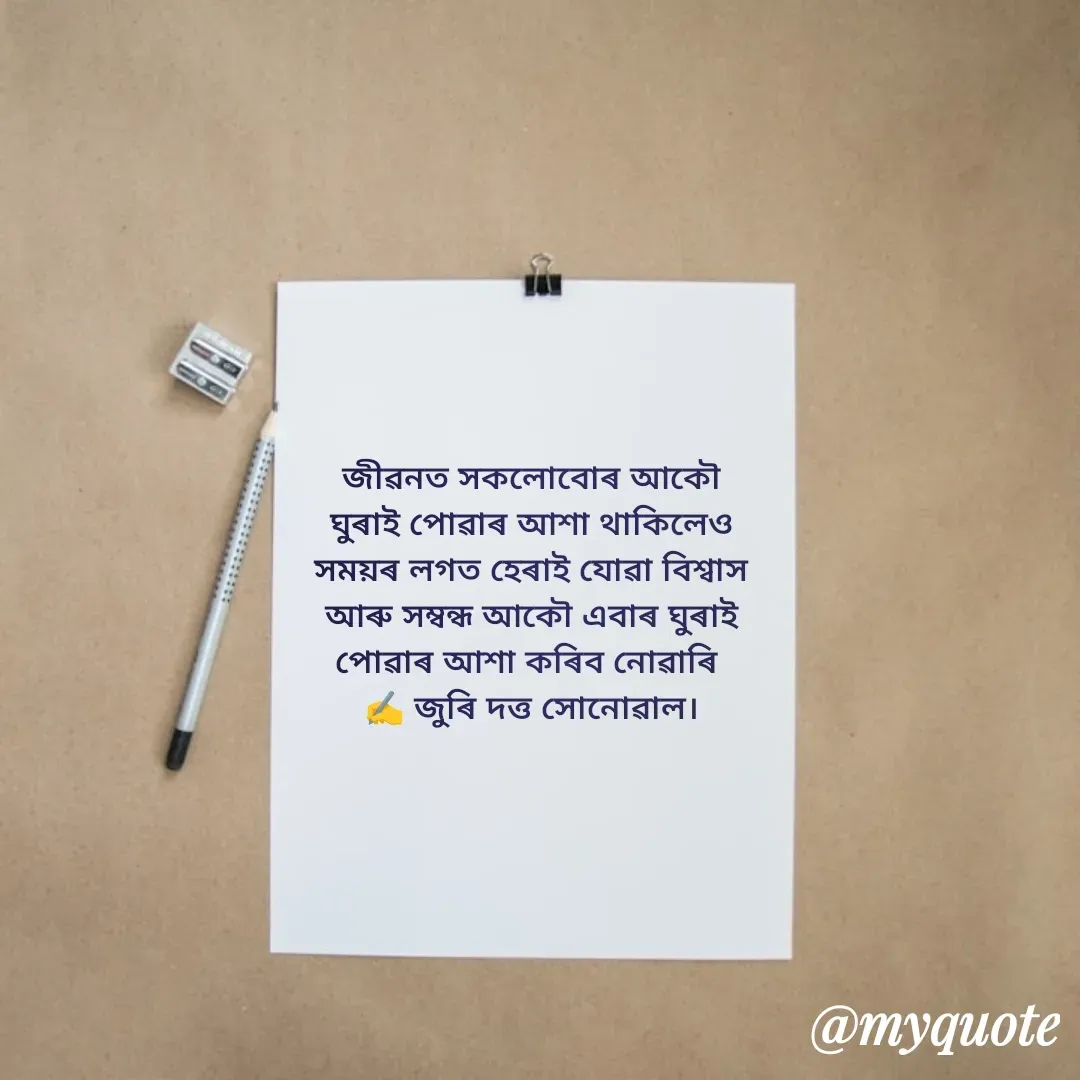 জীৱনত সকলোবোৰ আকৌ
ঘুৰাই পোৱাৰ আশা থাকিলেও
সময়ৰ লগত হেৰাই যোৱা বিশ্বাস
আৰু সম্বন্ধ আকৌ এবাৰ ঘুৰাই
পোৱাৰ আশা কৰিব নোৱাৰি
✍️ জুৰি দত্ত সোনোৱাল।
@myquote